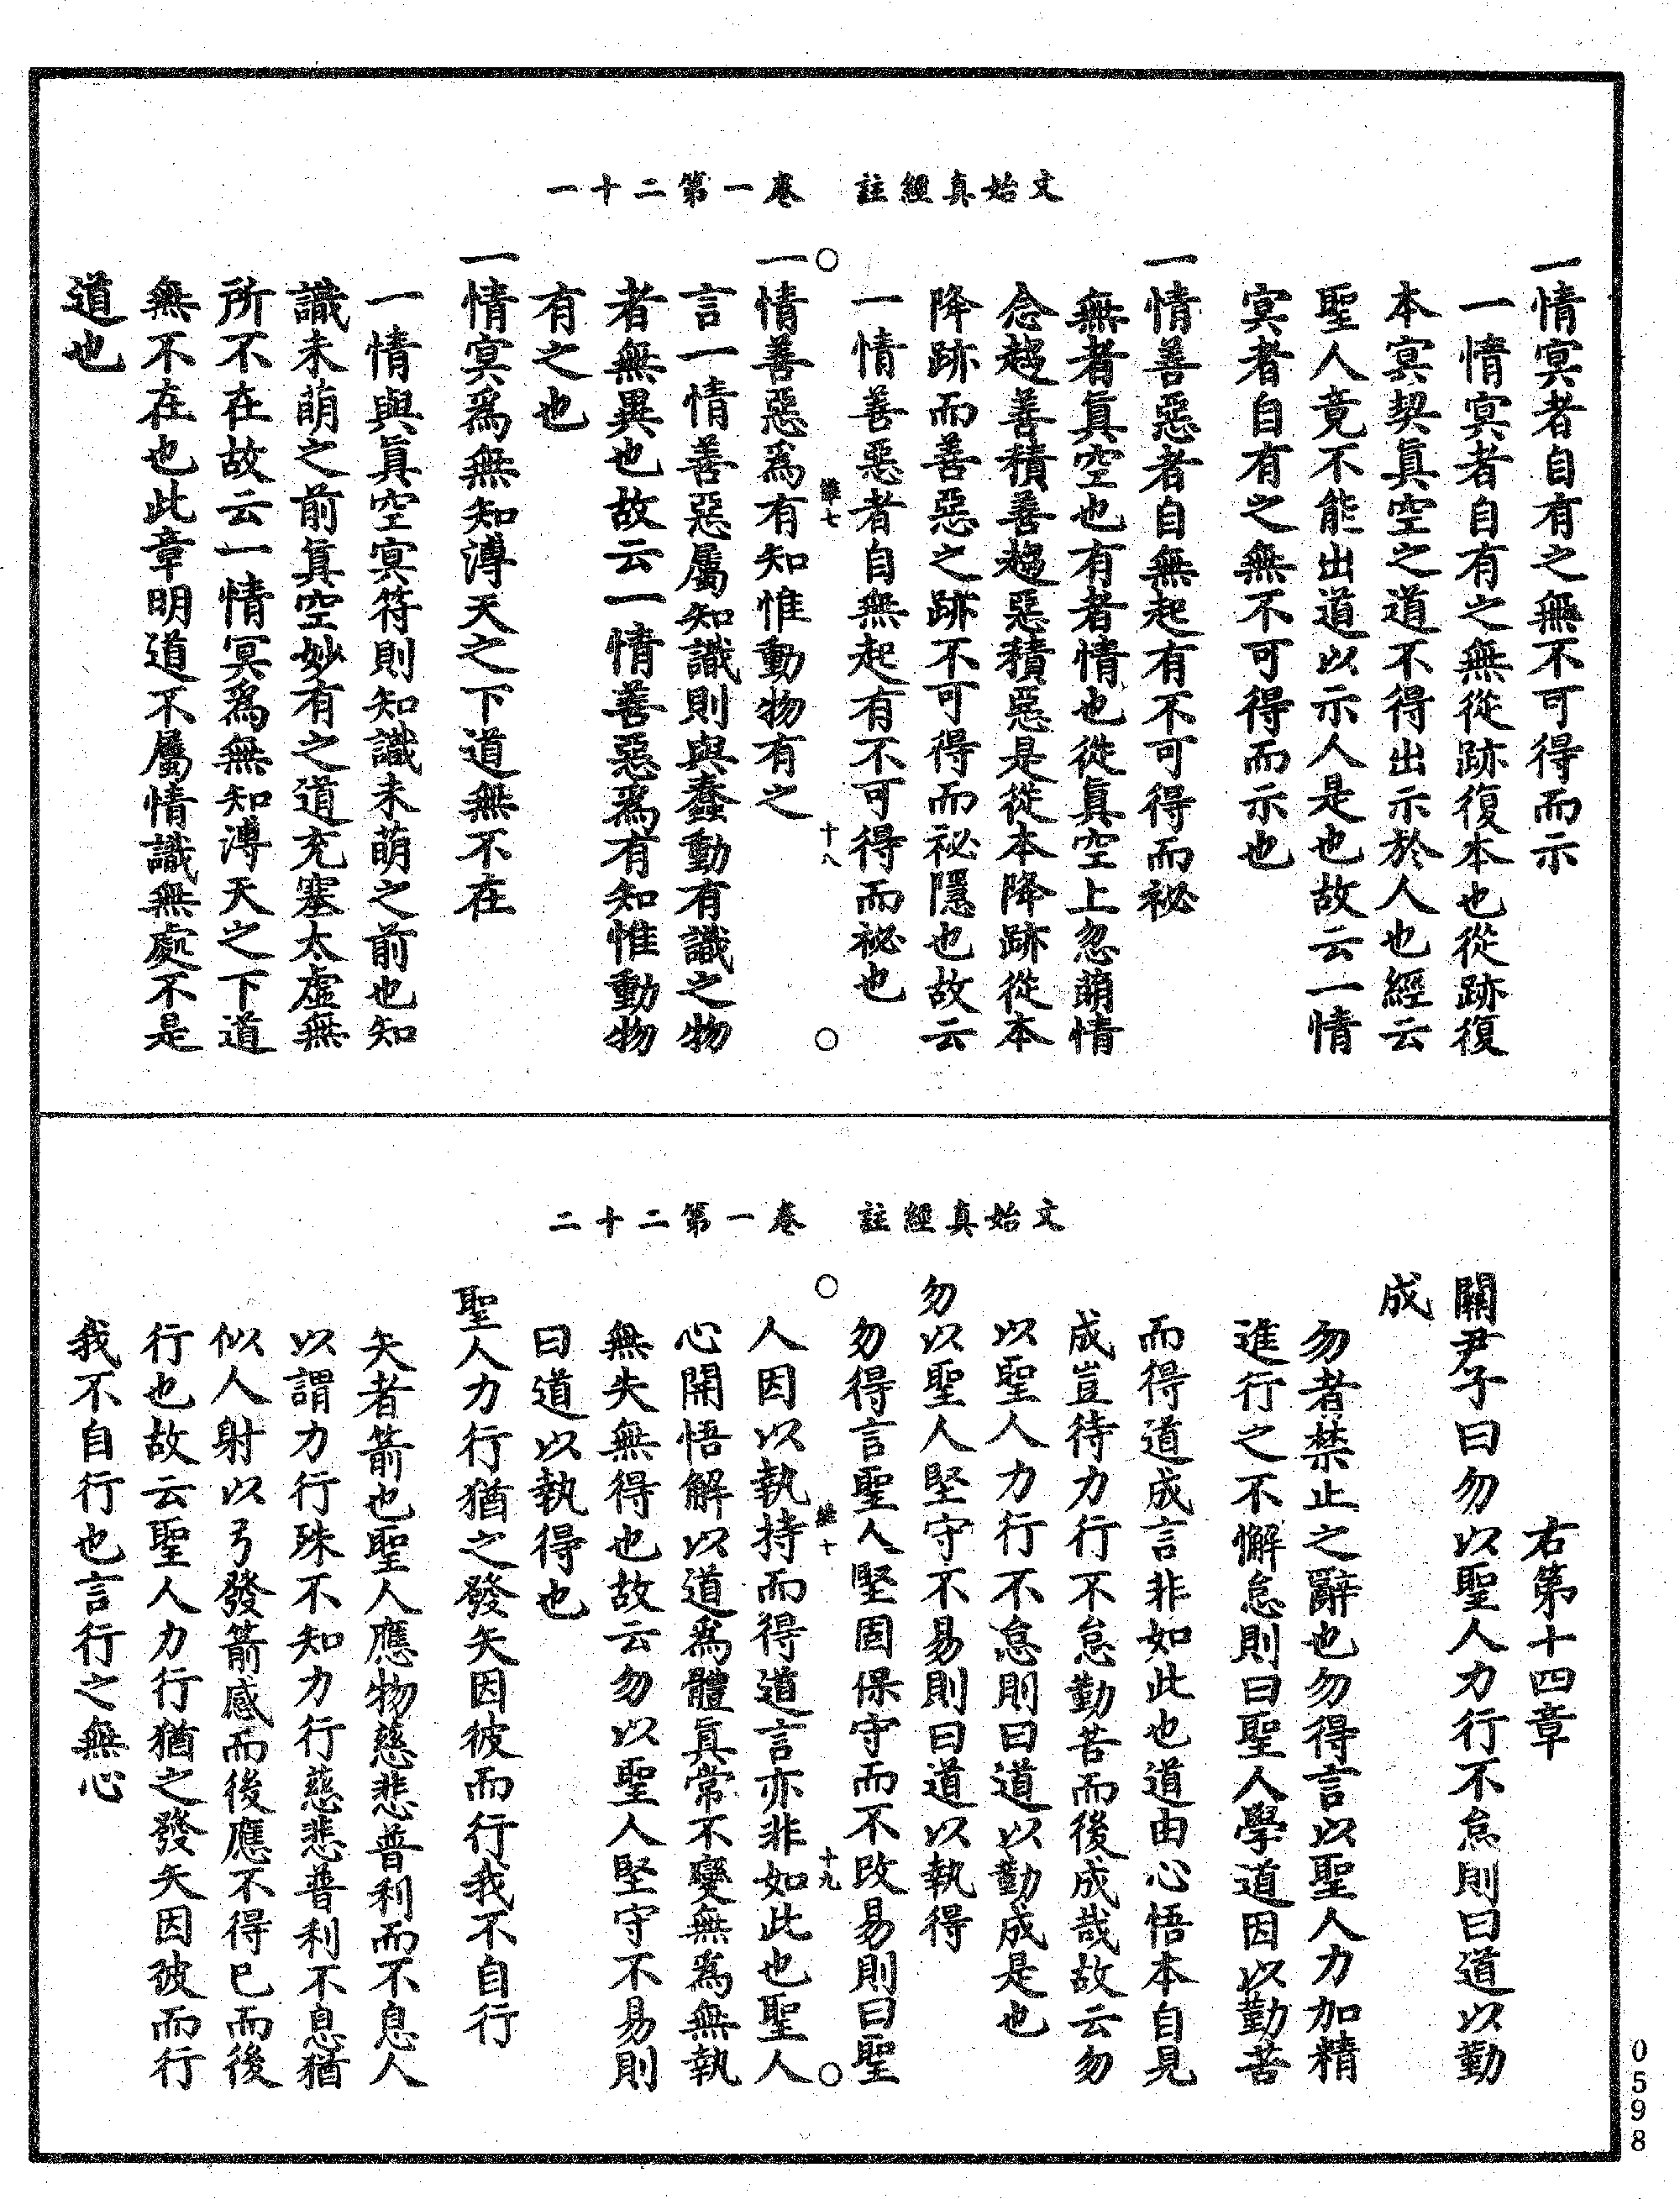 文始真經註　卷一第二十一
一情冥者自有之無不可得而示
一情冥者自有之無從跡復本也從跡復
本冥契眞空之道不得出示於人也經云
聖人竟不能出道以示人是也故云一情
冥者自有之無不可得而示也
一情善惡者自無起有不可得而祕
無者眞空也有者情也從眞空上忽萌情
念趨善積善趨惡積惡是從本降跡從本
降跡而善惡之跡不可得而祕隱也故云
一情善惡者自無起有不可得而祕也
十八
一情善惡爲有知惟動物有之
言一情善惡屬知識則與蠢動有識之物
者無異也故云一情善惡爲有知惟動物
有之也
一情冥爲無知溥天之下道無不在
一情與眞空冥符則知識未萌之前也知
識未萌之前眞空妙有之道充塞太虛無
所不在故云一情冥爲無知溥天之下道
無不在也此章明道不屬情識無處不是
道也
文始真經註　卷一第二十二
右第十四章
關尹子曰勿以聖人力行不怠則曰道以勤
成
勿者禁止之辭也勿得言以聖人力加精
進行之不懈怠則曰聖人學道因以勤苦
而得道成言非如此也道由心悟本自見
成豈待力行不怠勤苦而後成哉故云勿
以聖人力行不怠則曰道以勤成是也
勿以聖人堅守不易則曰道以執得
勿得言聖人堅固保守而不改易則曰聖
十九
人因以執持而得道言亦非如此也聖人
心開悟解以道爲體眞常不變無爲無執
無失無得也故云勿以聖人堅守不易則
曰道以執得也
聖人力行猶之發矢因彼而行我不自行
矢者箭也聖人應物慈悲普利而不息人
以謂力行殊不知力行慈悲普利不息猶
似人射以弓發箭感而後應不得已而後
行也故云聖人力行猶之發矢因彼而行
我不自行也言行之無心
0598